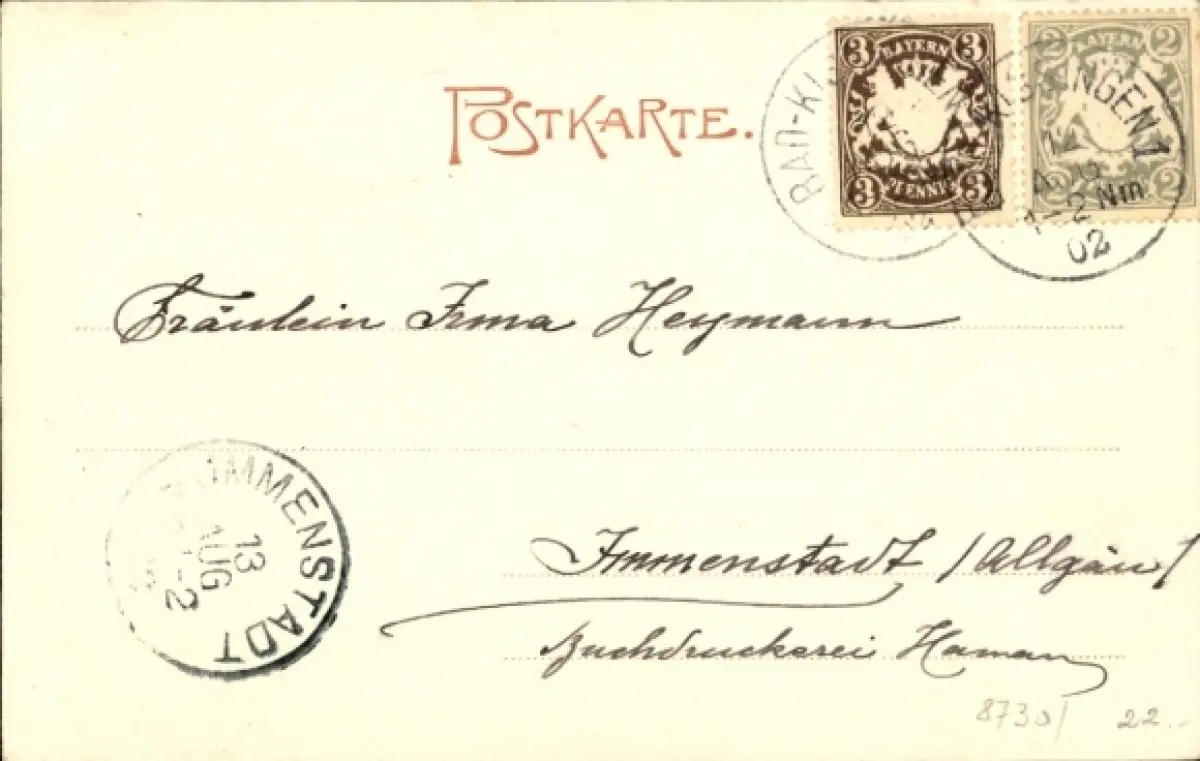 POSTKARTE.
3 BAYERN 3
3 PFENNIG 3
2 BAYERN 2
2 2
BAD-KI
INGEN 1
2 Nm
02
Fräulein Irma Heymann
IMMENSTADT
13
AUG
-2
Immenstadt /Allgäu/
Buchdruckerei Haman
8730/ 22.-